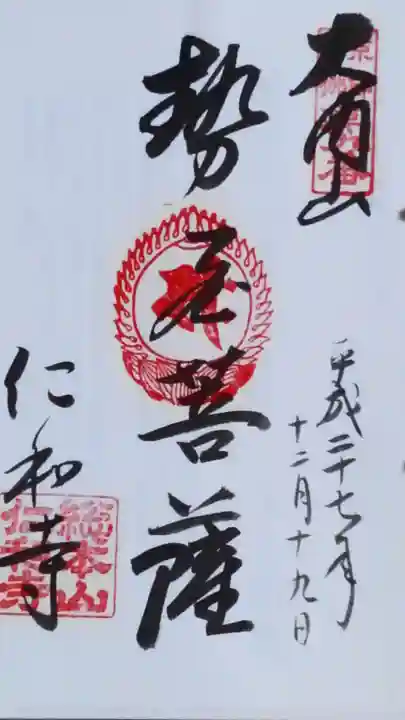 大内山
平成二十七年
十二月十九日
勢至菩薩
仁和寺
總本山
仁和寺